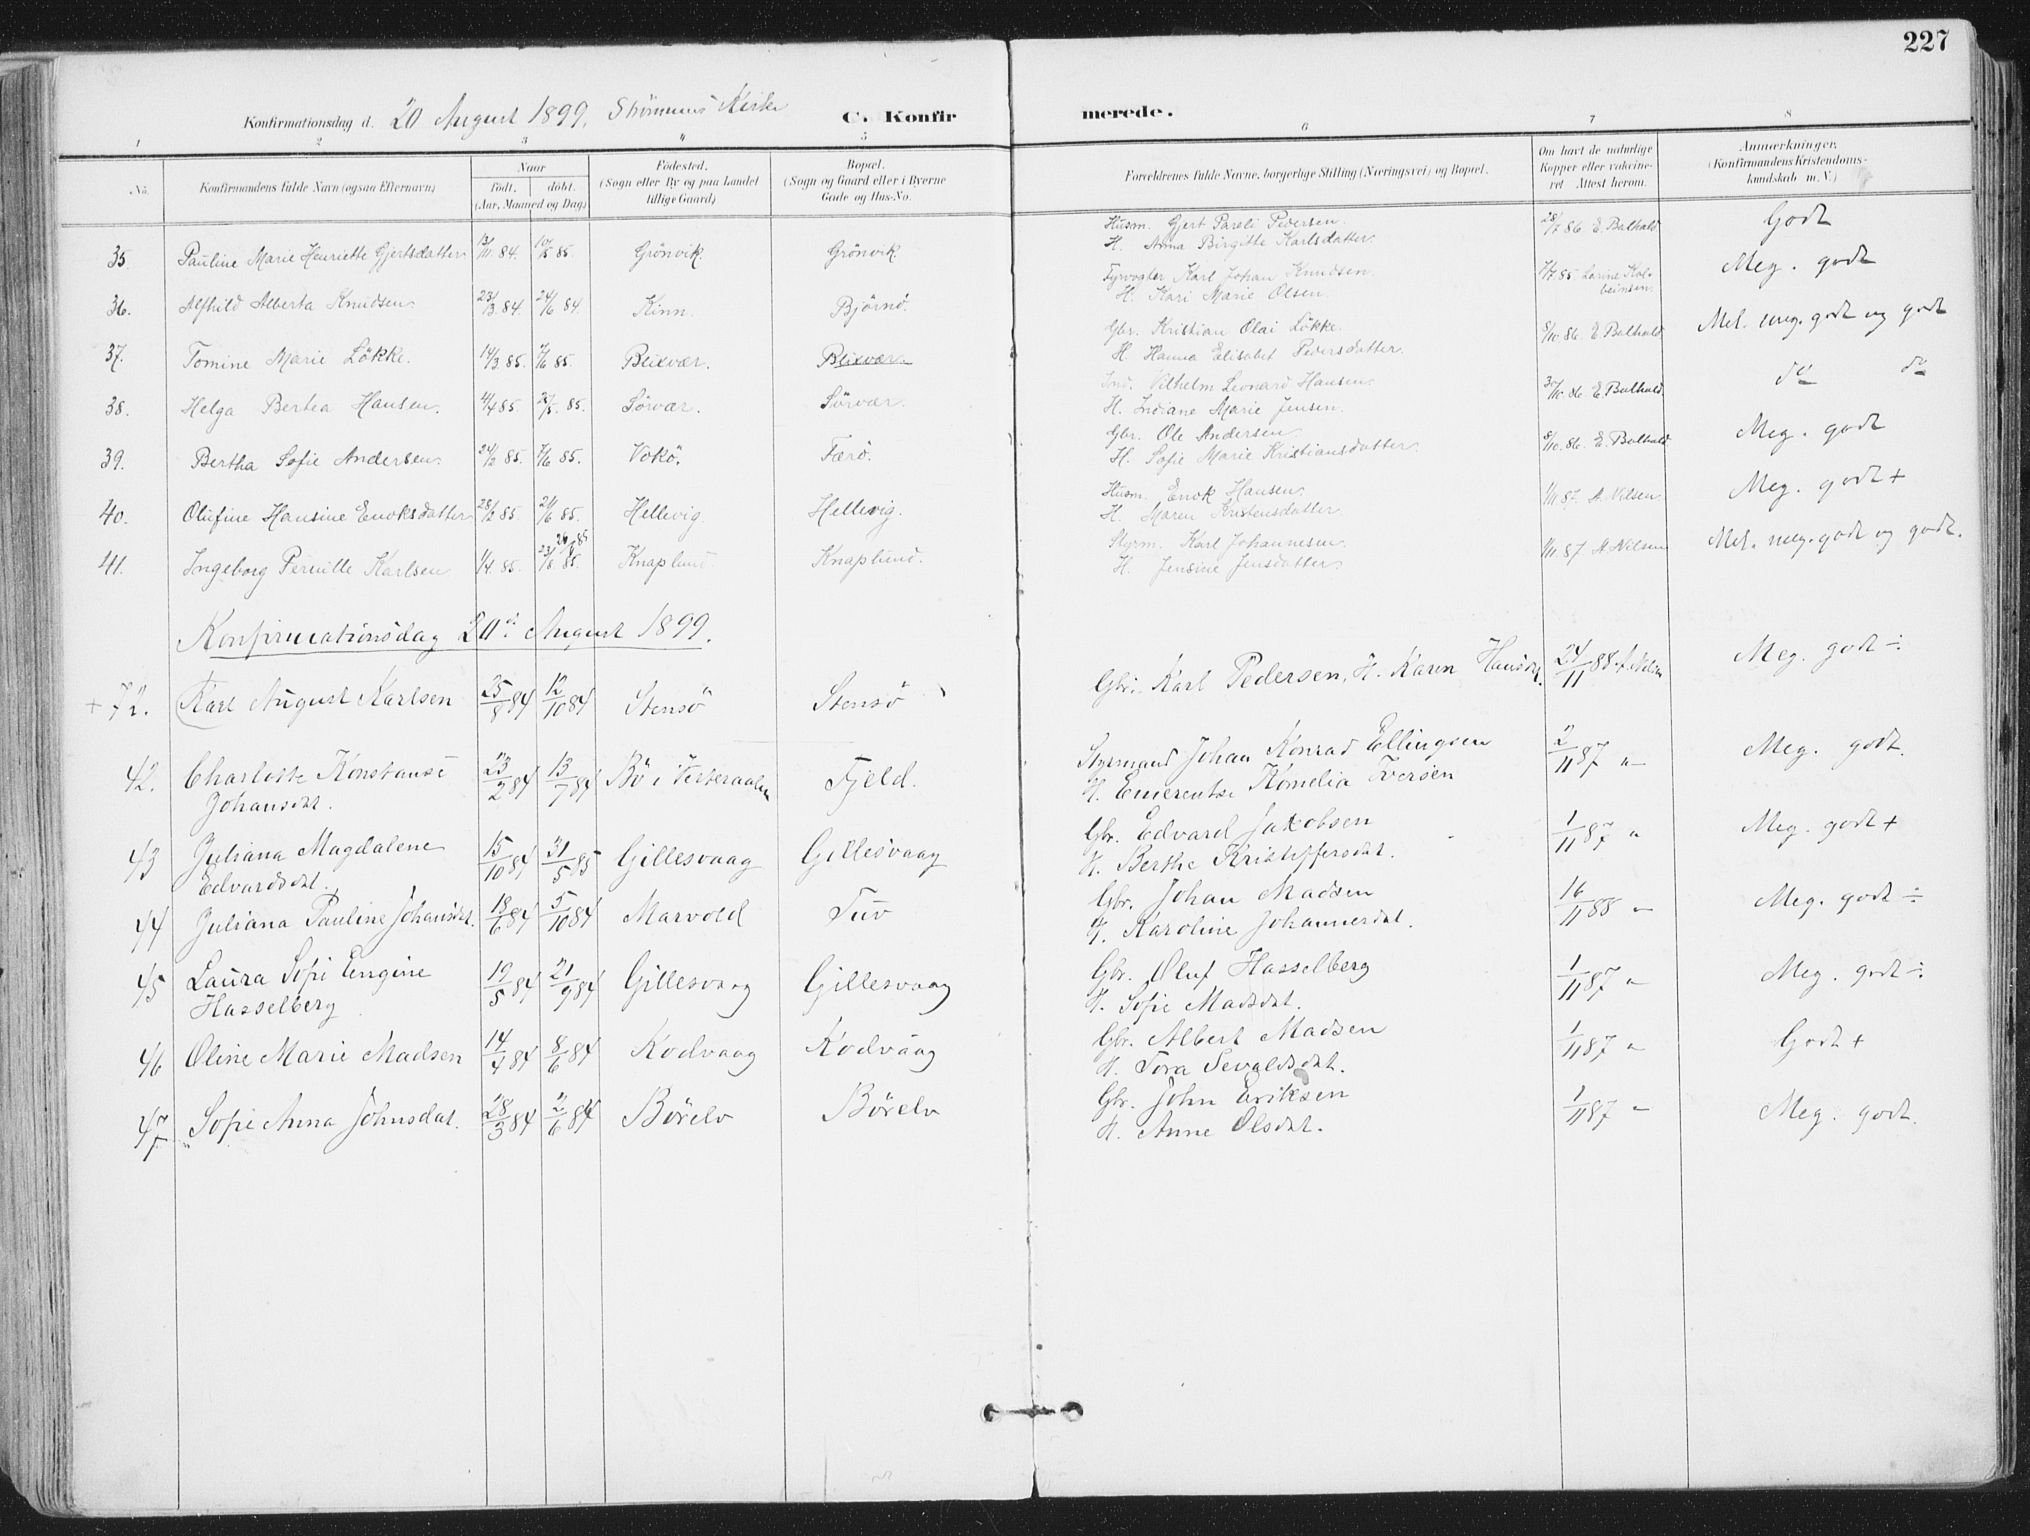 227
Konfirmationsdag d. 20 August 1899, Strømmens Kirke C. Konfirmerede.
1 2 3 4 5 6 7 8
No. Konfirmandens fulde Navn (ogsaa Efternavn) Naar født, døbt. (Aar, Maaned og Dag) Fødested. (Sogn eller By og paa Landet tillige Gaard) Bopæl. (Sogn og Gaard eller i Byerne Gade og Hus-No. Forældrenes fulde Navne, borgerlige Stilling (Næringsvei) og Bopæl. Om havt de naturlige Kopper eller vakcineret Attest herom. Anmærkninger. (Konfirmandens Kristendomskundskab m. V.)
35. Pauline Marie Henriette Gjertsdatter 13/11 84. 10/5 85. Grönvik. Grönvik. Husm. Gjert Pareli Pedersen. 28/7 86 E. Balhald Godt
H. Anna Birgitte Karlsdatter.
36. Alfhild Alberta Knudsen. 23/3 84. 24/6 84. Kinn. Björnö. Fyrvogter Karl Johan Knudsen. 7/7 85 Meg. godt
H. Kari Marie Olsen.
37. Tomine Marie Lökke. 14/3 85. 7/6 85. Blixvær. Blixvær. Gbr. Kristian Olai Lökke. 8/10 86 E. Balhald Mel. meg. godt og godt
H. Hanna Elisabet Pedersdatter.
38. Helga Bertea Hansen. 4/4 85. 27/5 85. Sörvær. Sörvær. Ind. Vilhelm Leonard Hansen. 30/10 86 E. Balhald do do
H. Indiane Marie Jensen.
39. Bertha Sofie Andersen. 24/2 85. 7/6 85. Vokö. Færö. Gbr. Ole Andersen 8/10. 86. E. Balhald Meg. godt
H. Sofie Marie Kristiansdatter.
40. Olufine Hansine Enoksdatter 28/2 85. 21/6 85. Hellevig. Hellevig. Husm. Enok Hansen. 1/11 87 A. Nilsen. Meg. godt +
H. Maren Kristensdatter
41. Ingeborg Pernille Karlsen 1/4. 85. 23/8 85. Knaplund. Knaplund. Styrm. Karl Johannesen. 1/11 87 A. Nilsen Mel. meg. godt og godt.
H. Jensine Jensdatter.
Konfirmationsdag August 1899.
+ 72. Karl August Karlsen 25/8 84 12/10 84 Stensö Stensö Gbr. Karl Pedersen, H. Karen Hansdt. 24/11 88 A. Nilsen Meg. godt ÷
42. Charlotte Konstanse 23/2 84 13/7 84 Bö i Vesteraalen Fjeld. Styrmand Johan Konrad Ellingsen 2/11 87 " Meg. godt.
Johansdat. H. Emerentse Kornelia Iversen
43 Juliana Magdalene 15/10 84 31/5 85 Gillesvaag Gillesvaag Gbr. Edvard Jakobsen 1/11 87 " Meg. godt +
Edvardsdat. H. Berthe Kristoffersdat.
44 Juliana Pauline Johansdat. 18/6 84 5/10 84 Marvold Tuv Gbr. Johan Madsen 16/11 88 " Meg. godt ÷
H. Karoline Johannesdat.
45 Laura Sofi Engine 19/5 84 21/9 84 Gillesvaag Gillesvaag Gbr. Oluf Hasselberg 1/11 87 " Meg. godt ÷
Hasselberg H. Sofie Madsdat.
46 Oline Marie Madsen 14/4 84 8/6 84 Kodvaag Kodvaag Gbr. Albert Madsen 1/11 87 " Godt +
H. Tora Sevaldsdat.
47 Sofie Anna Johnsdat. 28/3 84 2/6 84 Börelv Börelv Gbr. John Eriksen 1/11 87 " Meg. godt.
H. Anne Olsdat.